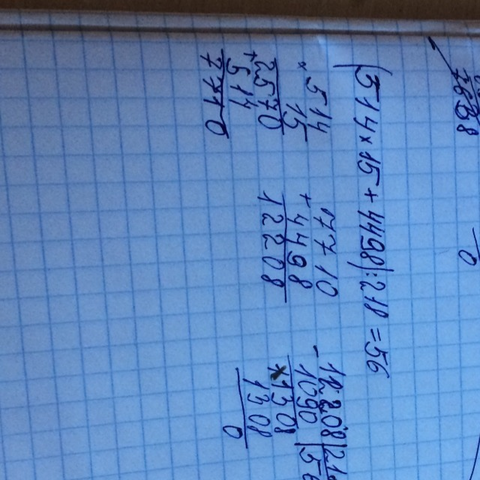 (514×15+4498):218=56
×514
15
2570
+514
7710
7710
+4498
12208
-12208|21
1090|56
1308
1308
0
0